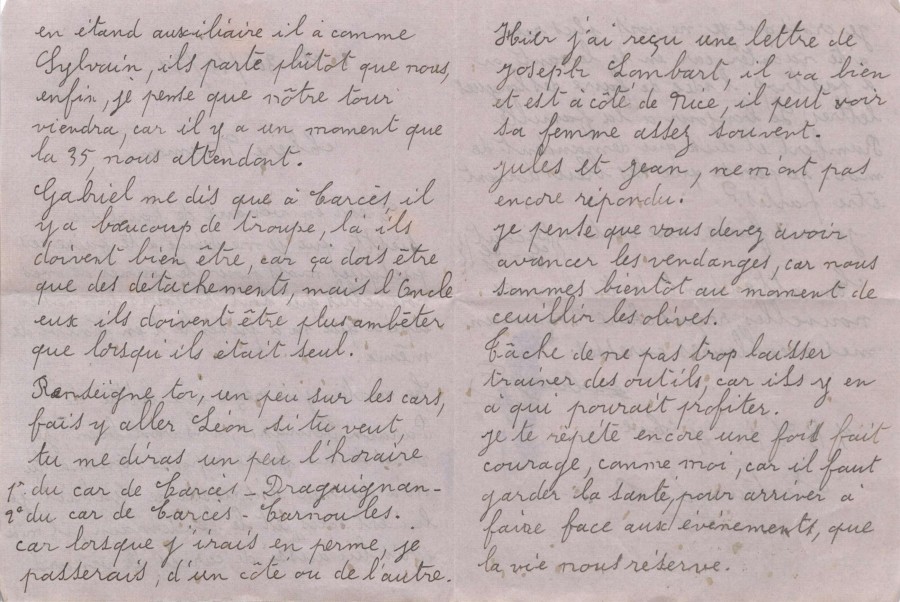 en étand auxiliaire il à comme
Sylvain, ils parte plûtot que nous,
enfin, je pense que nôtre tour
viendra, car il y a un moment que
la 35, nous attendont.
Gabriel me dis que à Carcès, il
y a bœucoup de troupe, là ils
doivent bien être, car ça dois être
que des détachements, mais l'Oncle
eux ils doivent être plus ambêter
que lorsqu'ils était seul.
Renseigne toi, un peu sur les cars,
fais y aller Léon si tu veut
tu me diras un peu l'horaire
1º du car de Carcès - Draguignan -
2º du car de Carcès - Carnoules.
car lorsque j'irais en perme, je
passerais, d'un côté ou de l'autre.
Hier j'ai reçu une lettre de
Joseph Lombart, il va bien
et est a côté de Nice, il peut voir
sa femme assez souvent.
Jules et Jean, ne m'ont pas
encore répondu.
je pense que vous devez avoir
avancer les vendanges, car nous
sommes bientôt au moment de
ceuillir les olives.
Tâche de ne pas trop laisser
trainer des outils, car ils y en
à qui pourait profiter.
je te répéte encore une fois fait
courage, comme moi, car il faut
garder la santé, pour arriver à
faire face aux événements, que
la vie nous réserve.